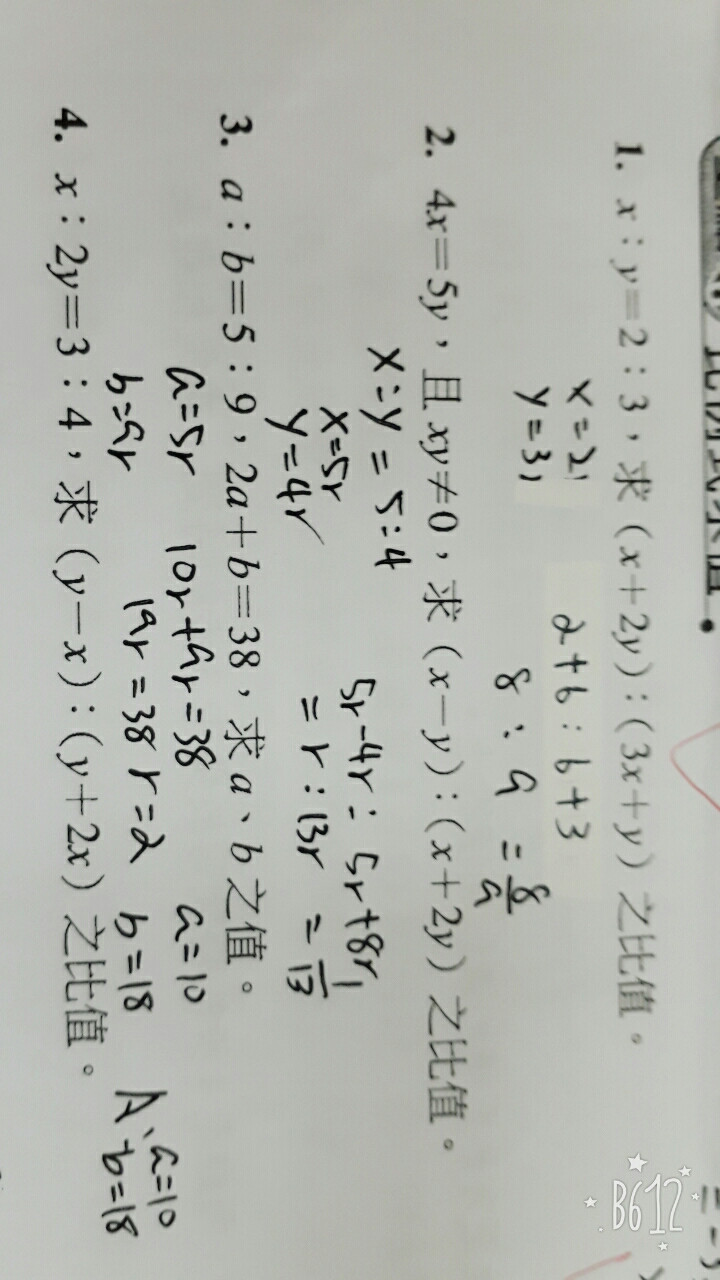 1. x：y＝2：3，求（x＋2y）：（3x＋y）之比值。
x=2
y=3
2+6：6+3
8：9 = 8/9
2. 4x＝5y，且 xy≠0，求（x－y）：（x＋2y）之比值。
x:y = 5:4
x=5r
y=4r
5r-4r：5r+8r
= r：13r = 1/13
3. a：b＝5：9，2a＋b＝38，求 a、b 之值。
a=5r
b=9r
10r+9r=38
19r=38 r=2
a=10
b=18
A、a=10
b=18
4. x：2y＝3：4，求（y－x）：（y＋2x）之比值。
B612